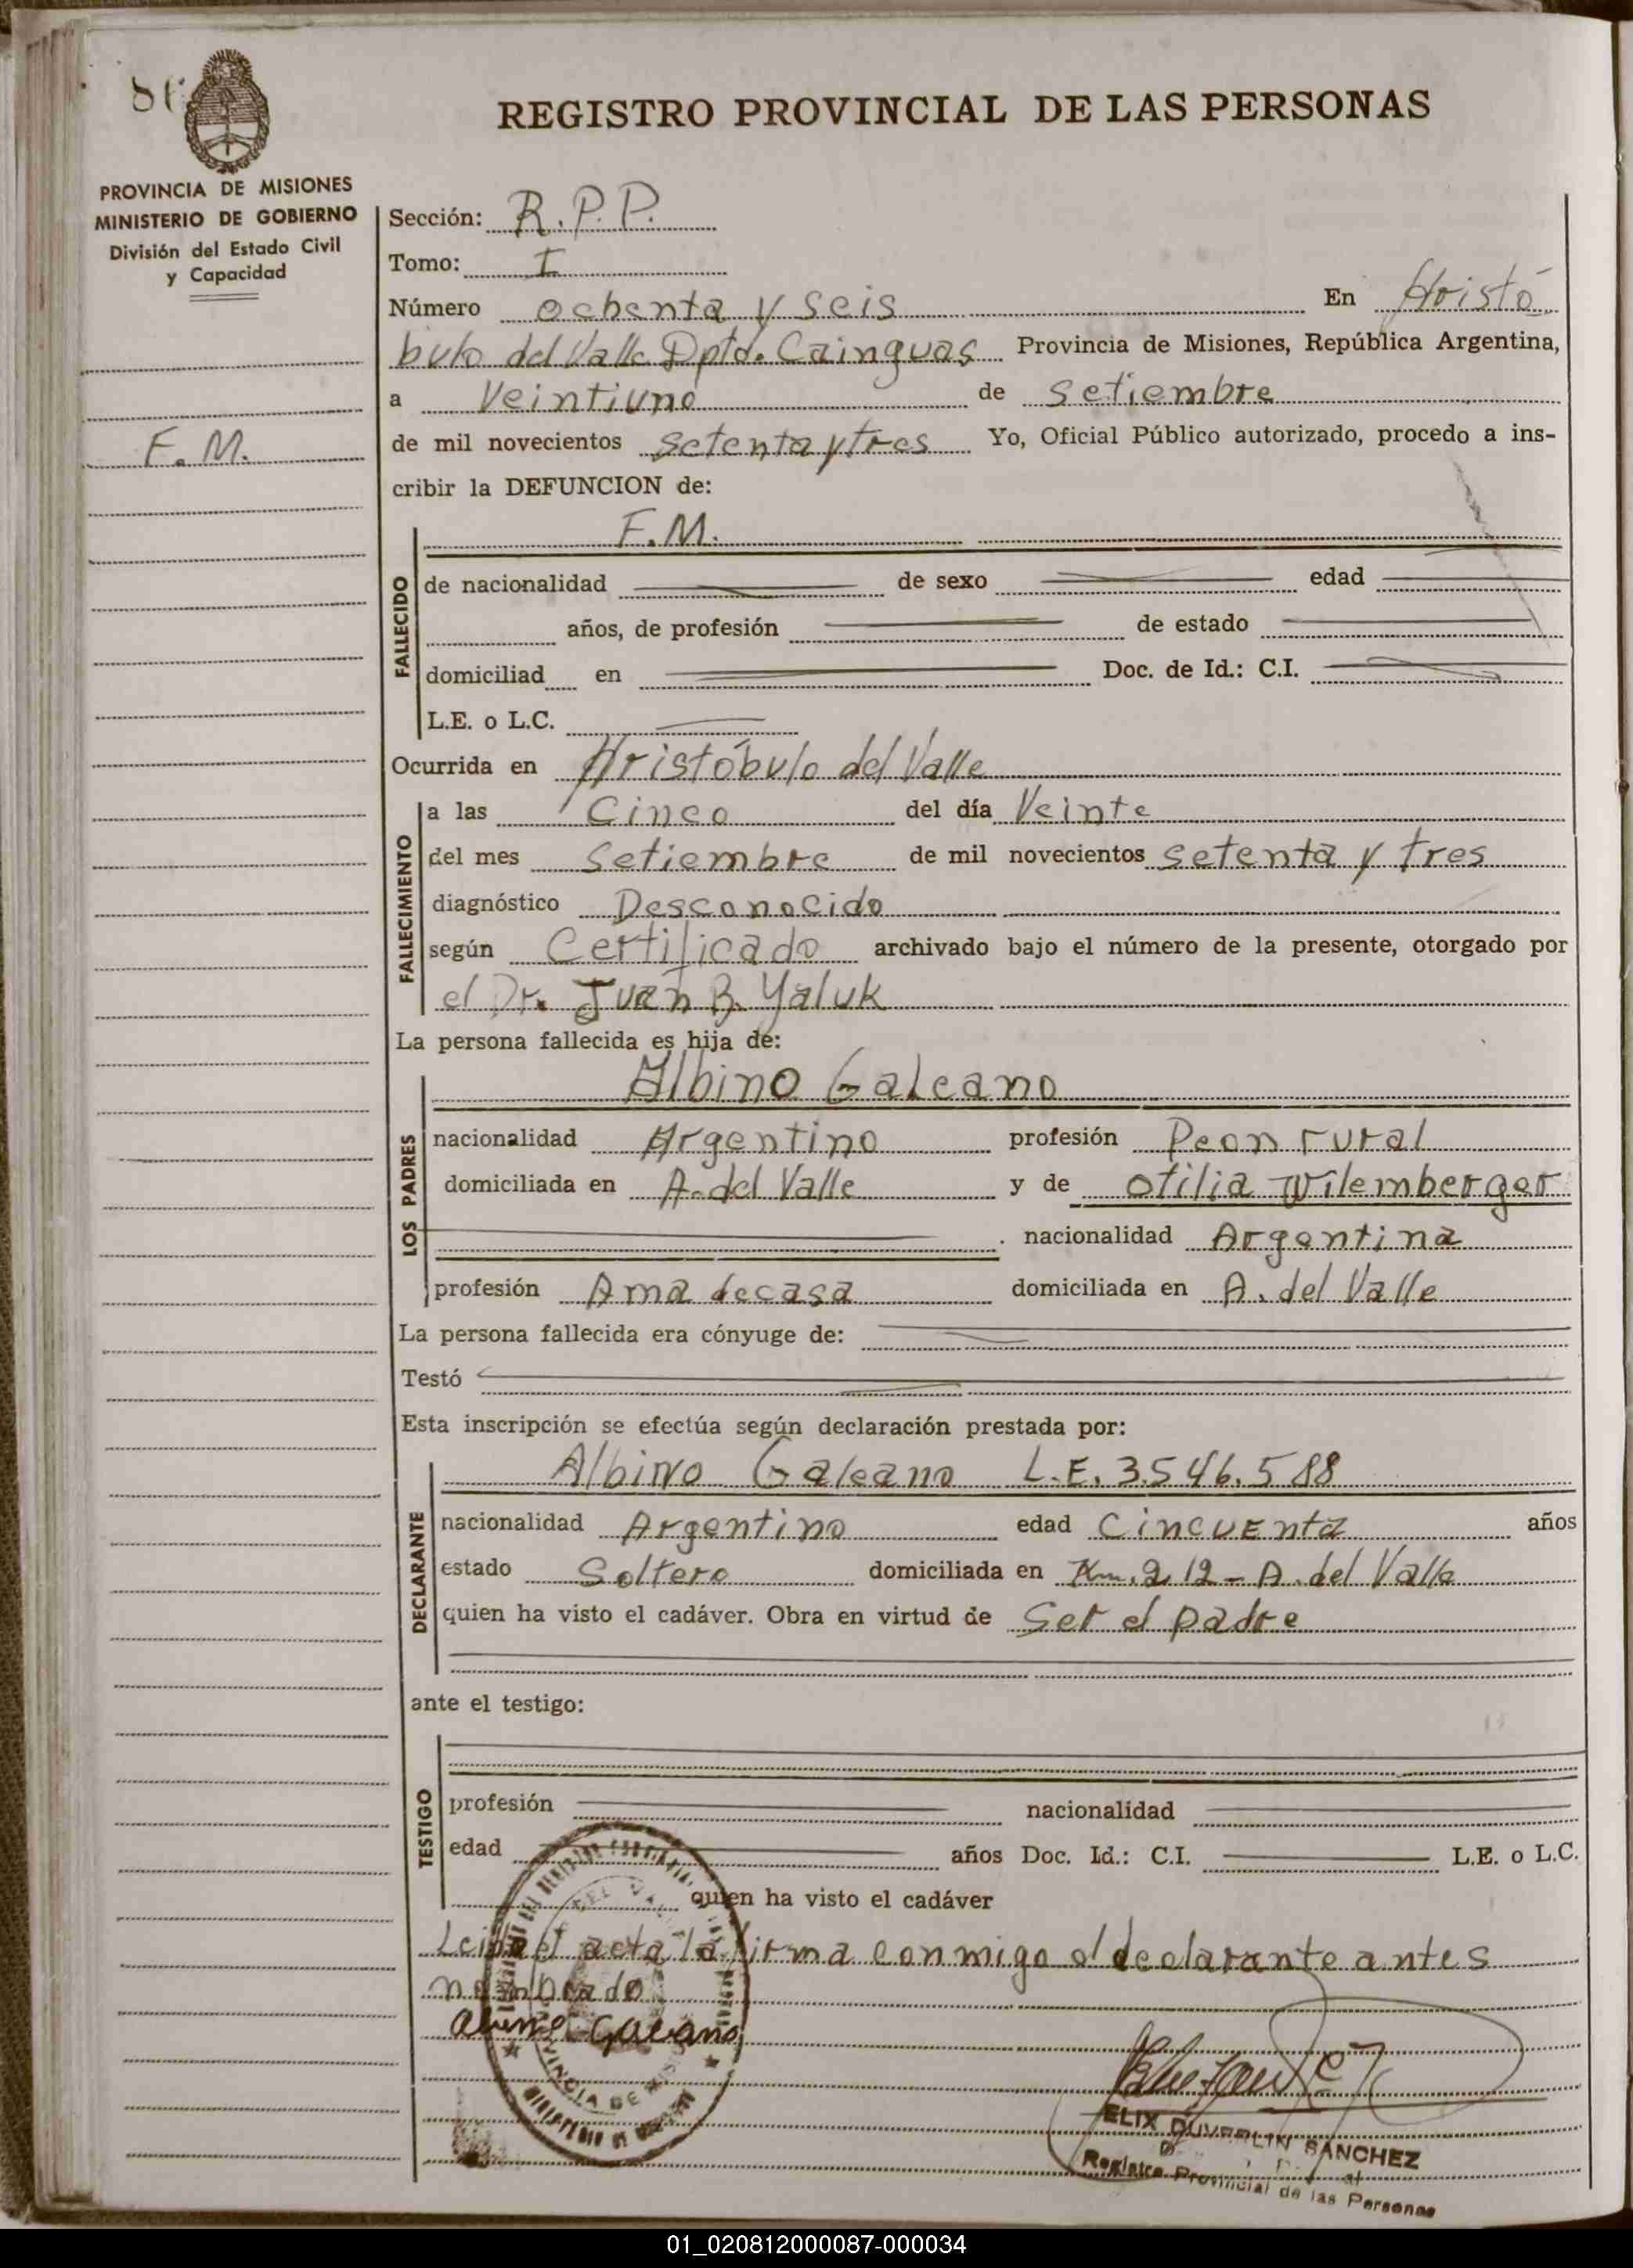 86
REGISTRO PROVINCIAL DE LAS PERSONAS
PROVINCIA DE MISIONES
MINISTERIO DE GOBIERNO
División del Estado Civil
y Capacidad
F. M.
Sección: R.P.P.
Tomo: I
Número ochenta y seis En Aristó
bulo del Valle Dpto. Cainguas Provincia de Misiones, República Argentina,
a Veintiuno de setiembre
de mil novecientos setenta y tres Yo, Oficial Público autorizado, procedo a ins-
cribir la DEFUNCION de:
F.M.
FALLECIDO
de nacionalidad de sexo edad
años, de profesión de estado
domiciliad en Doc. de Id.: C.I.
L.E. o L.C.
Ocurrida en Aristóbulo del Valle
FALLECIMIENTO
a las Cinco del día Veinte
del mes Setiembre de mil novecientos setenta y tres
diagnóstico Desconocido
según Certificado archivado bajo el número de la presente, otorgado por
el Dr. Juan B. Yaluk
La persona fallecida es hija de:
Albino Galeano
LOS PADRES
nacionalidad Argentino profesión Peon rural
domiciliada en A. del Valle y de otilia Wilemberger
nacionalidad Argentina
profesión Ama de casa domiciliada en A. del Valle
La persona fallecida era cónyuge de:
Testó
Esta inscripción se efectúa según declaración prestada por:
Albino Galeano L.E. 3.546.588
DECLARANTE
nacionalidad Argentino edad Cincuenta años
estado Soltero domiciliada en Km. 212 - A. del Valle
quien ha visto el cadáver. Obra en virtud de Ser el padre
ante el testigo:
TESTIGO
profesión nacionalidad
edad años Doc. Id.: C.I. L.E. o L.C.
quien ha visto el cadáver
Leida el acta la firma conmigo el declarante antes
nombrado
Galeano
ELIX DUVERLIN SANCHEZ
Registro Provincial de las Personas
01_020812000087-000034